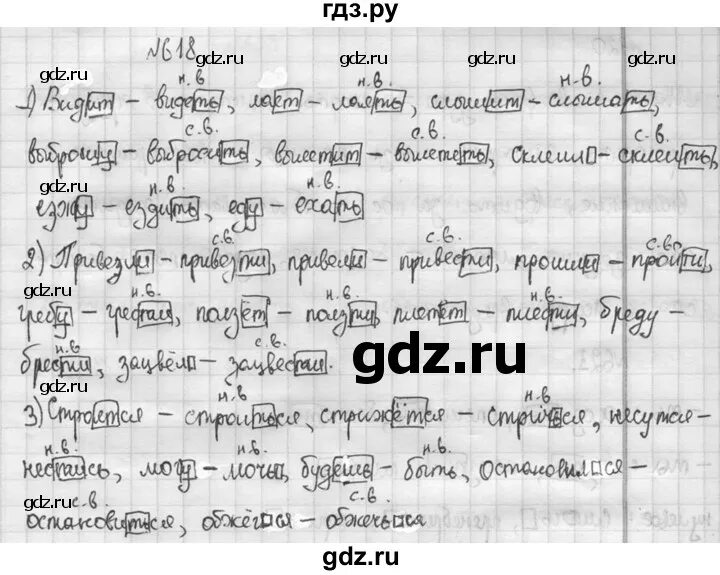 гдз.ру
№618
gdz.ru gdz.ru gdz.ru gdz.ru
н.в. н.в. н.в.
1) Видит – видеть, лает – лаять, слышит – слышать,
с.в. с.в. с.в.
выброшу – выбросить, вылетит – вылететь, склеил – склеить,
gdz.ru gdz.ru gdz.ru gdz.ru
н.в. н.в.
езжу – ездить, еду – ехать
с.в. с.в. с.в.
2) Привезли – привезти, привели – привести, прошли – пройти,
gdz.ru gdz.ru gdz.ru gdz.ru
н.в. н.в. н.в.
гребу – грести, ползёт – ползти, плетёт – плести, бреду –
н.в. с.в.
брести, зацвёл – зацвести.
gdz.ru
gdz.ru gdz.ru gdz.ru
н.в. н.в. н.в.
3) Строится – строиться, стрижётся – стричься, несутся –
н.в. н.в. н.в.
нестись, могу – мочь, будешь – быть, остановился –
gdz.ru gdz.ru gdz.ru gdz.ru
с.в. с.в.
остановиться, обжёгся – обжечься
gdz.ru